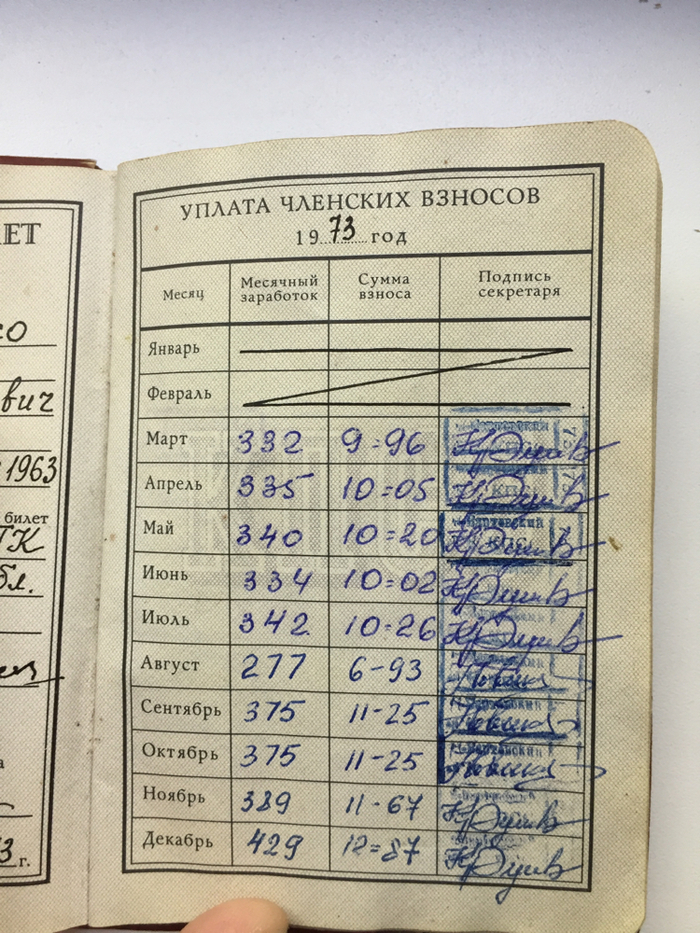 ЕТ
со
вич
1963
билет
ТК
бл.
а
3 г.
УПЛАТА ЧЛЕНСКИХ ВЗНОСОВ
1973 год
Месяц Месячный заработок Сумма взноса Подпись секретаря
Январь
Февраль
Март 332 9=96
Апрель 335 10=05
КПС
Май 340 10=20
Июнь 334 10=02
Июль 342 10=26
Август 277 6-93
Сентябрь 375 11-25
Октябрь 375 11-25
Ноябрь 389 11-67
Декабрь 429 12=87